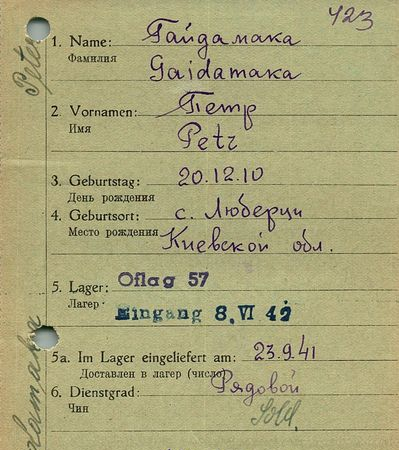 423
1. Name: Гайдамака
Фамилия
Gaidamaka
2. Vornamen: Петр
Имя
Petr
3. Geburtstag: 20.12.10
День рождения
4. Geburtsort: с. Люберци
Место рождения Киевской обл.
5. Lager: Oflag 57
Лагер: Eingang 8. VI 42
5a. Im Lager eingeliefert am: 23.9.41
Доставлен в лагер (число)
6. Dienstgrad: Рядовой
Чин Sold.
Peter